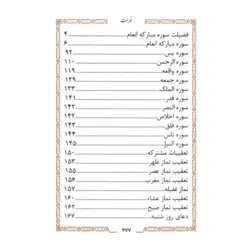 فهرست
فضیلت سوره مبارکه انعام ۴
سوره مبارکه انعام ۶
سوره یس ۹۲
سوره الرحمن ۱۱۰
سوره واقعه ۱۱۹
سوره جمعه ۱۲۹
سوره الملک ۱۳۳
سوره قدر ۱۴۱
سوره النصر ۱۴۲
سوره اخلاص ۱۴۲
سوره فلق ۱۴۳
سوره ناس ۱۴۴
سوره النبإ ۱۴۵
تعقیبات مشترکه ۱۵۰
تعقیب نماز ظهر ۱۵۳
تعقیب نماز عصر ۱۵۵
تعقیب نماز مغرب ۱۵۶
نماز غفیله ۱۵۷
تعقیب نماز عشاء ۱۶۰
تعقیب نماز صبح ۱۶۲
دعای روز شنبه ۱۶۷
۲۷۷